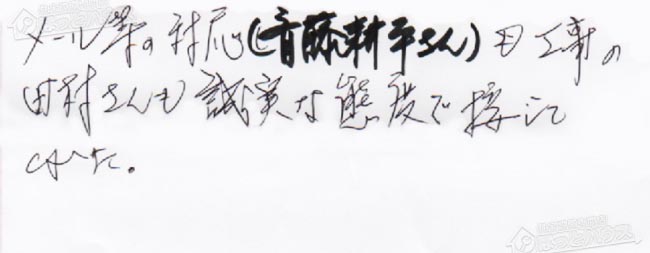 メール等の対応(斉藤耕平さん)も工事の
田村さんも誠実な態度で接して
くれた。